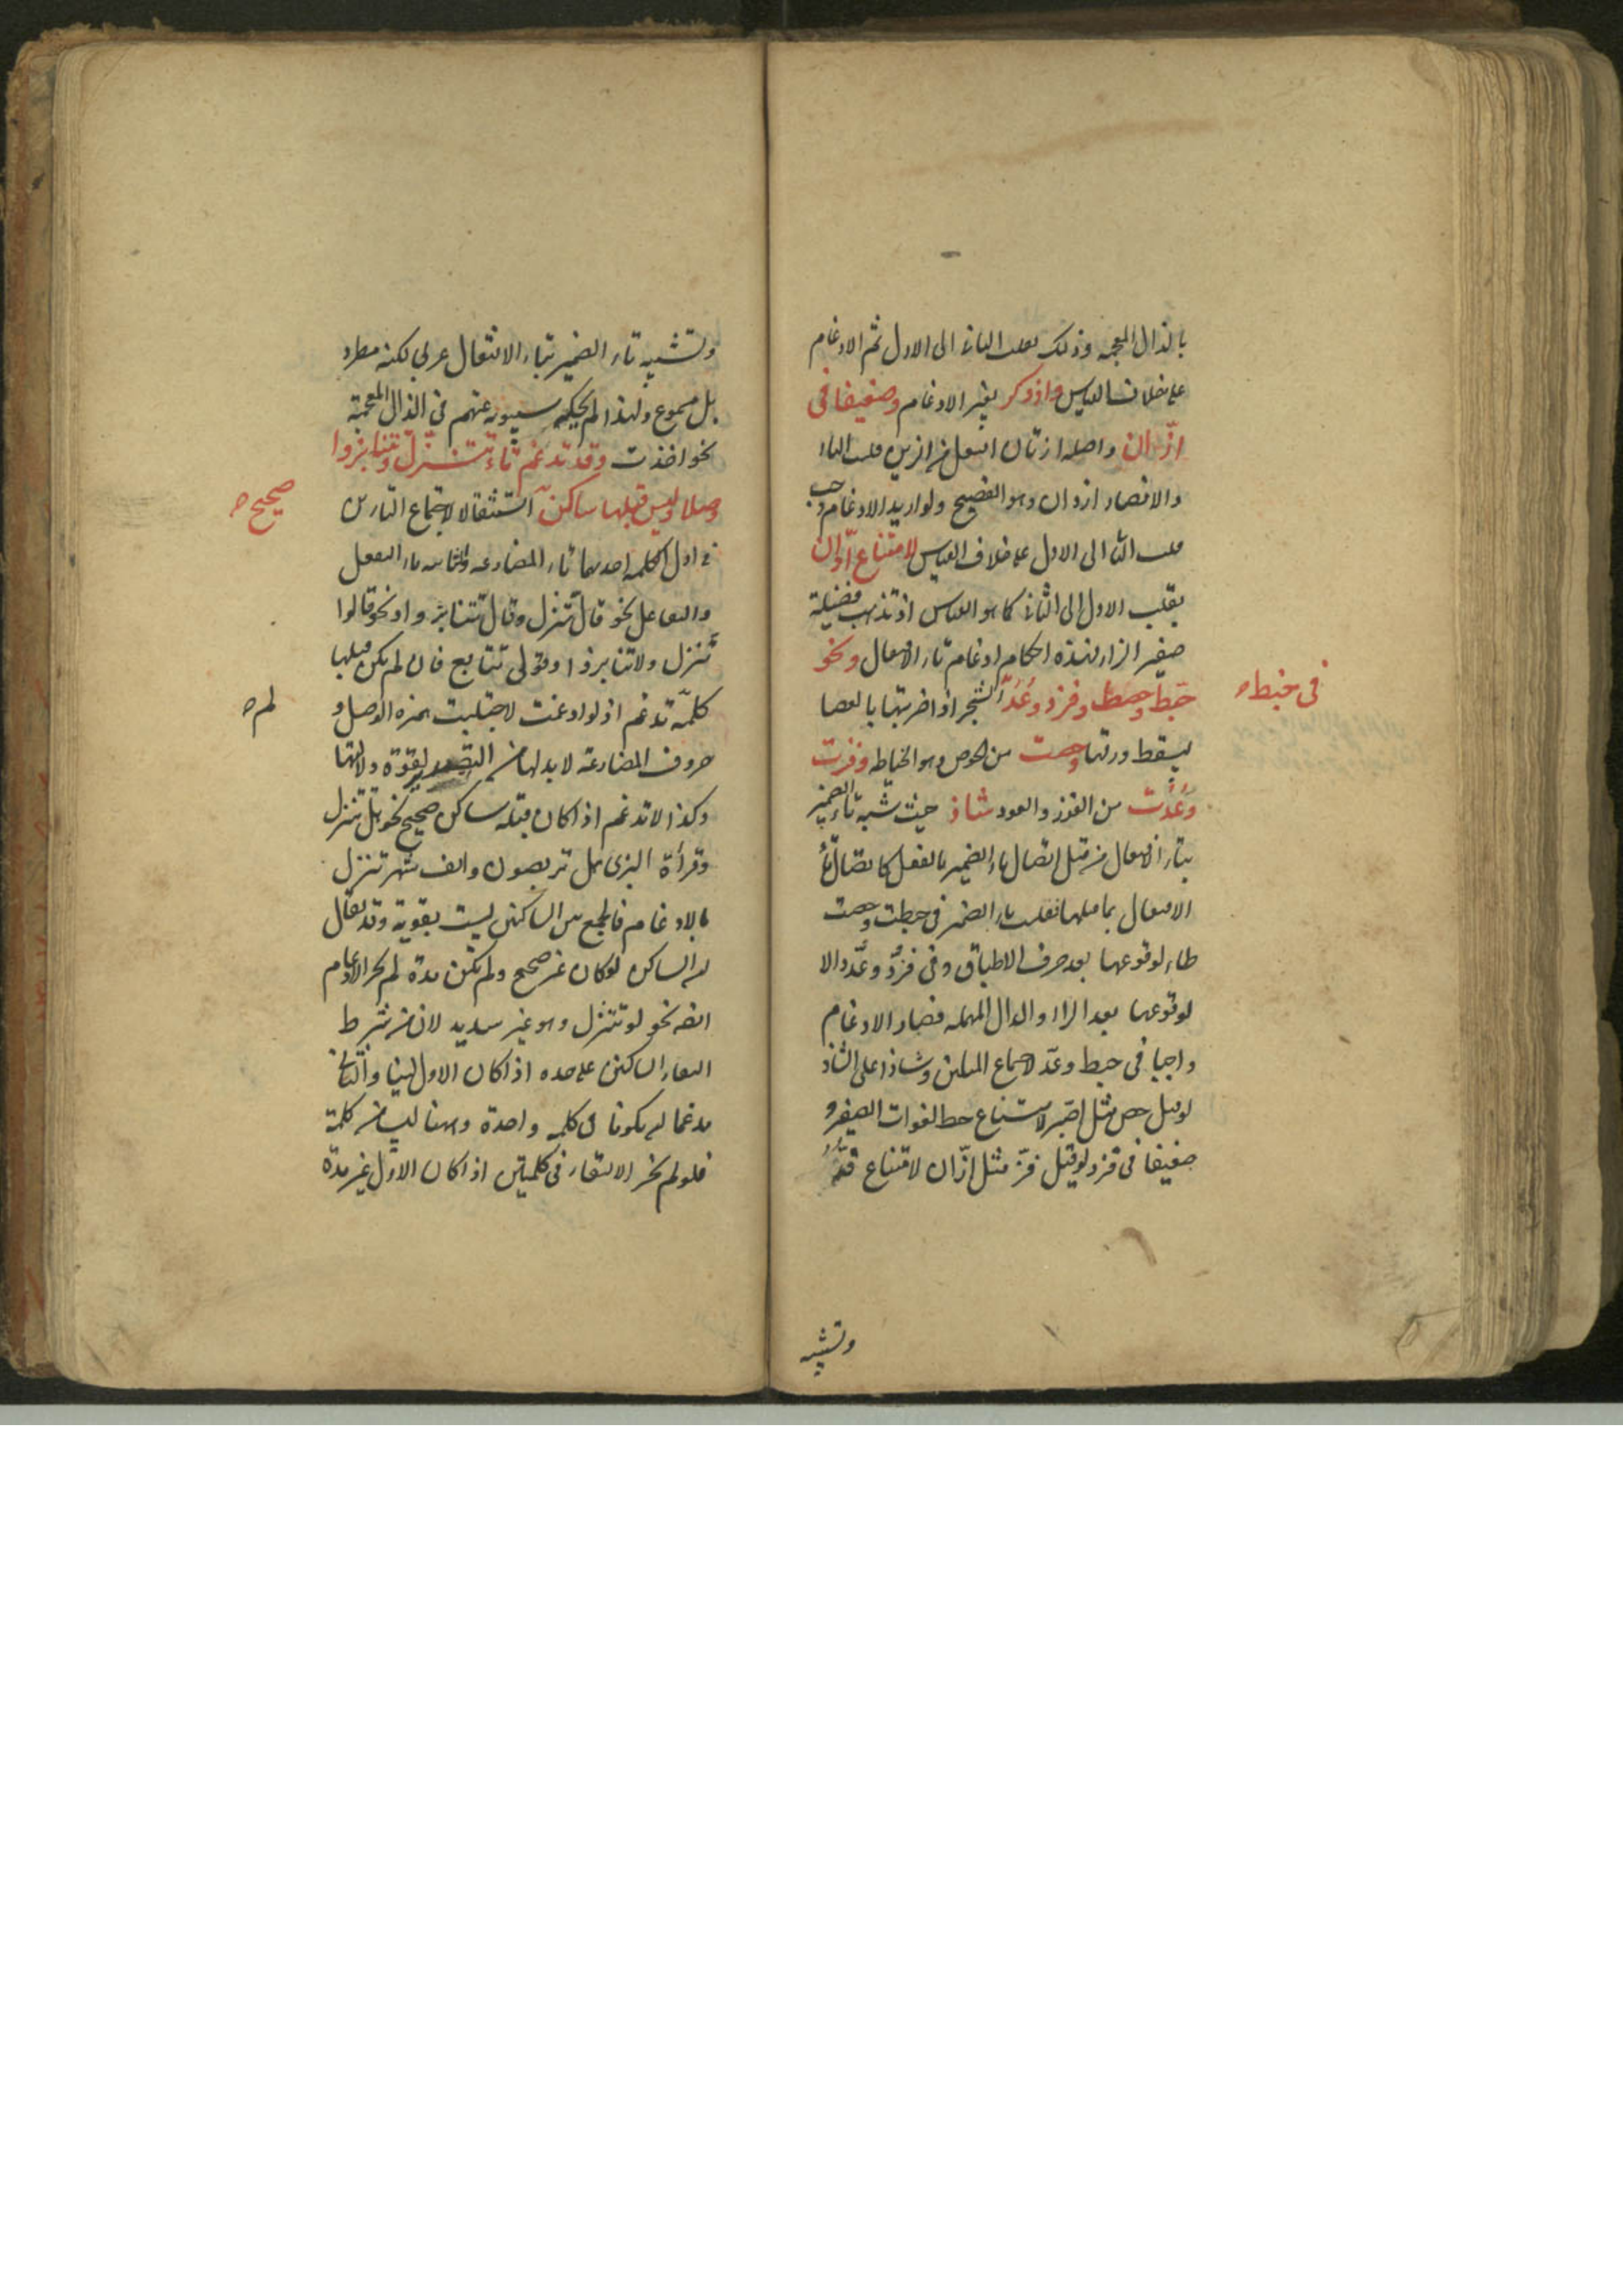 بالذال المعجمه وذلك بقلب الثانى الى الاول ثم الادغام
على خلاف القياس واذدكر بغير الادغام وضعيفا فى
ازّان واصله ازتان افتعل من الزين قلب التاء
والاقتصار ازدان وهو الفصيح ولو اريد الادغام وجب
قلب الثانى الى الاول على خلاف القياس لامتناع ادّان
بقلب الاول الى الثانى كما هو القياس اذ تذهب فضيلة
صفير الزاء لهذه احكام ادغام تاء الافتعال ونحو
خبط وحصط وفزد وعُدّ الشجر اذا ضربتها بالعصا
فى خبط
ليسقط ورقها وحصت من الحوص وهو الخياطه وفزت
وعُدت من الفوز والعود شاذ حيث شبه تاء الضمير
بتاء الافتعال من قبل اتصال تاء الضمير بالفعل كاتصال تاء
الافتعال بما قبلها فقلبت تاء الضمير فى خبطت وحصت
طاء لوقوعها بعد حرف الاطباق وفى فزد وعدّ دالا
لوقوعها بعد الزاء والدال المهمله فصار الادغام
واجبا فى خبط وعدّ لاجتماع المثلين وشاذا على الشاذ
لو قيل حصّ مثل اصّبر لامتناع حط لفوات الصفير و
ضعيفا فى فزد لو قيل فزّ مثل ازّان لامتناع فدّ
وتشبيه
وتشبيه تاء الضمير بتاء الافتعال عربى لكنه مطرد
بل مسموع ولهذا لم يحكه سيبويه عنهم فى الذال المعجمة
نحو اخذت وقد تدغم تاء تتنزّل وتتنابزوا
وصلا وليس قبلها ساكن استثقالا لاجتماع التاءين
صحيح
فى اول الكلمه احدهما تاء المضارعه والثانيه تاء التفعل
والتفاعل نحو قال تّنزل وقال تّتنابزوا ونحو قالوا
تّنزل ولا تّنابزوا وقولى تّتابع فان لم يكن قبلها
كلمة تدغم اذ لو ادغمت لاجتلبت همزه الوصل و
لم
حروف المضارعة لا بد لها من التصدر لقوة دلالتها
وكذا لا تدغم اذا كان قبله ساكن صحيح نحو هل تتنزل
وقرأة البزى هل تربصون والف شهر تنزل
بالادغام فالجمع بين الساكنين ليست بقوية وقد يقال
ان الساكن لو كان غير صحيح ولم يكن مدة لم يجز الادغام
ايضا نحو لو تتنزل وهو غير سديد لان من شرط
التقاء الساكنين على حده اذا كان الاول لينا والثانى
مدغما ان يكونا فى كلمه واحدة وههنا ليسا من كلمة
فلو لم يجز الالتقاء فى كلمتين اذا كان الاول غير مدة